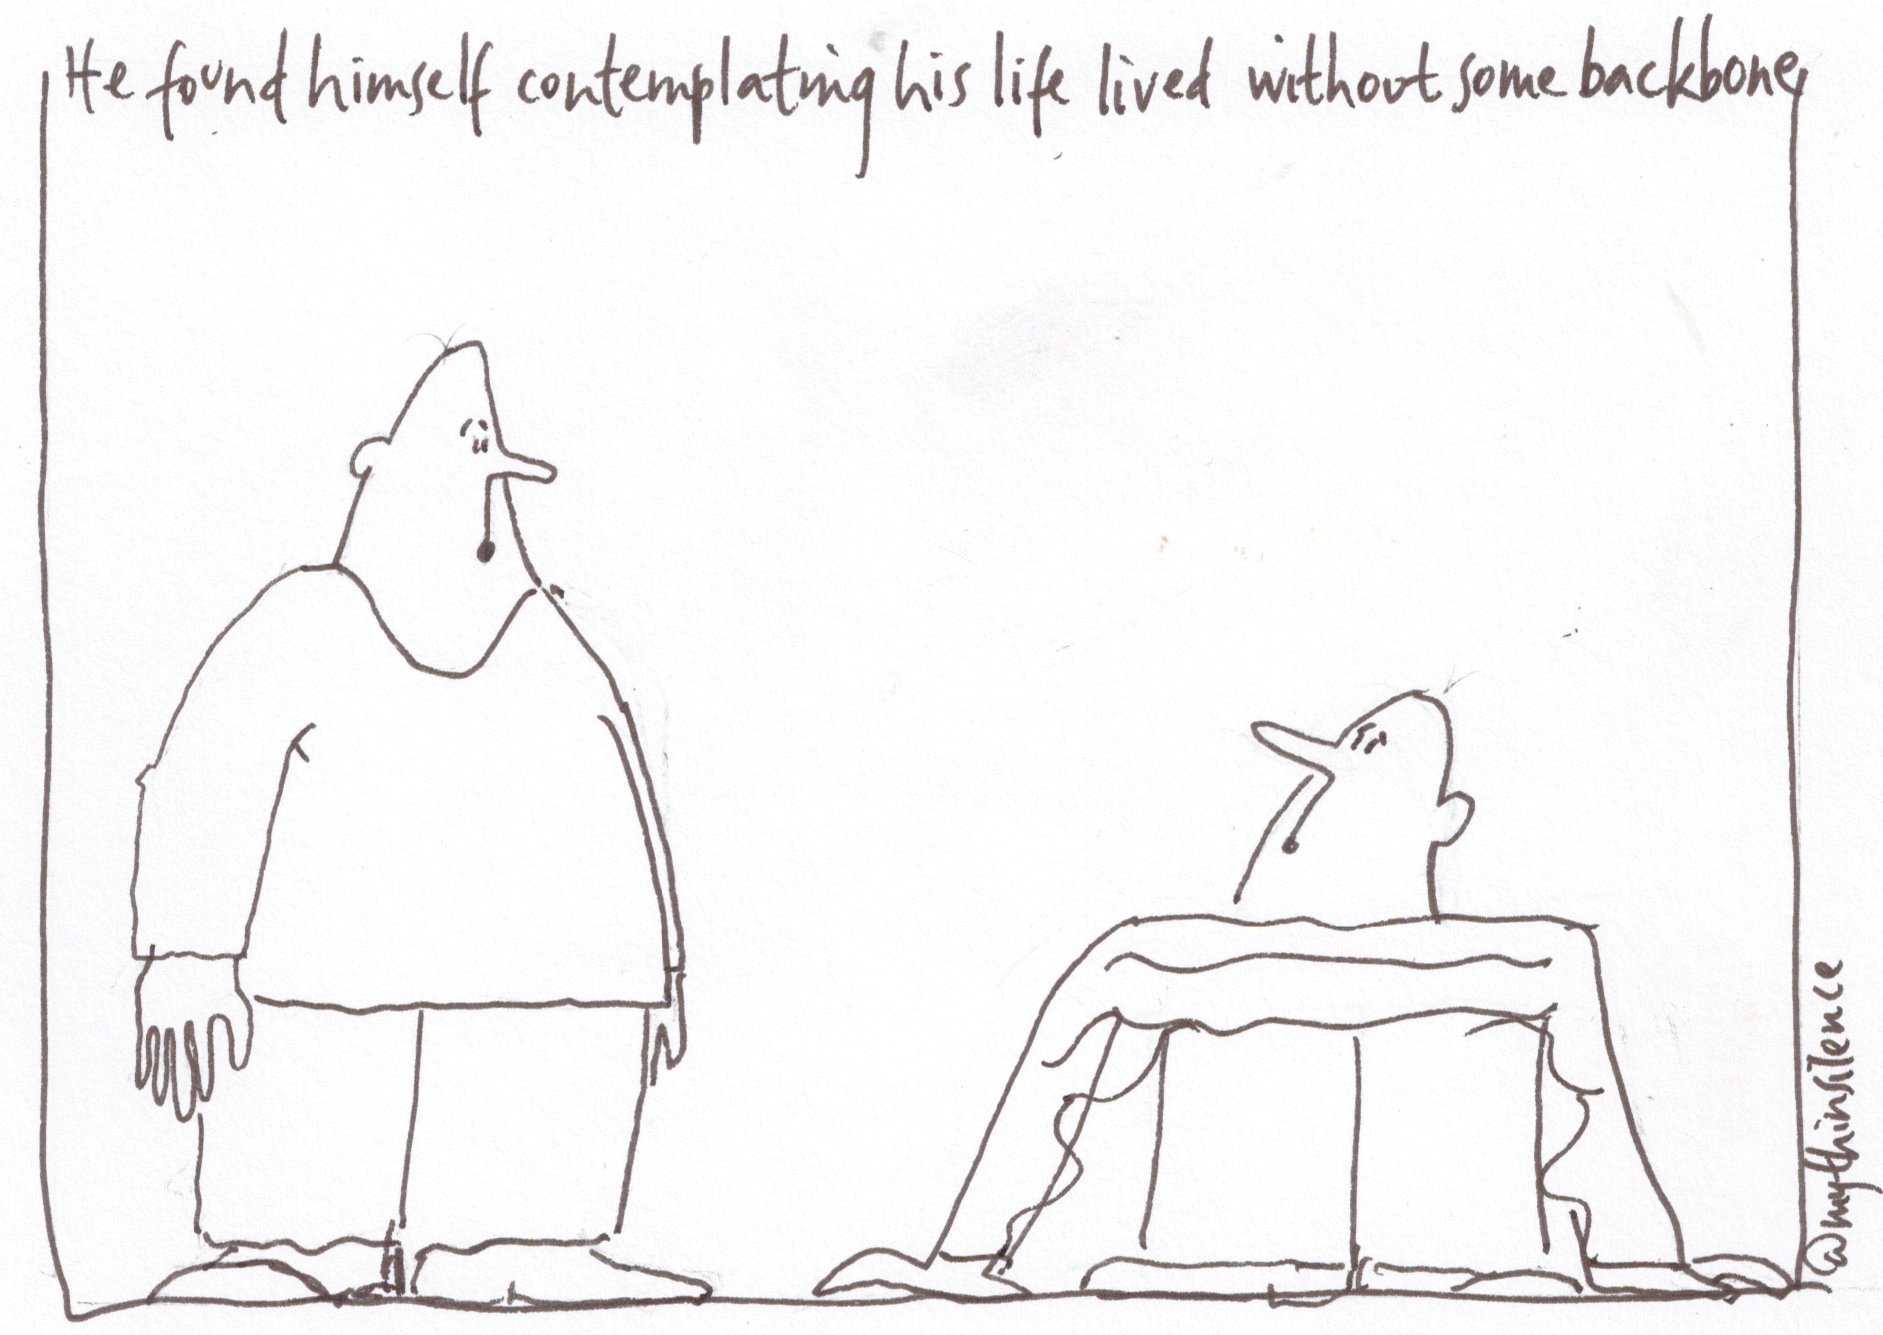 He found himself contemplating his life lived without some backbone
@mythinsilence